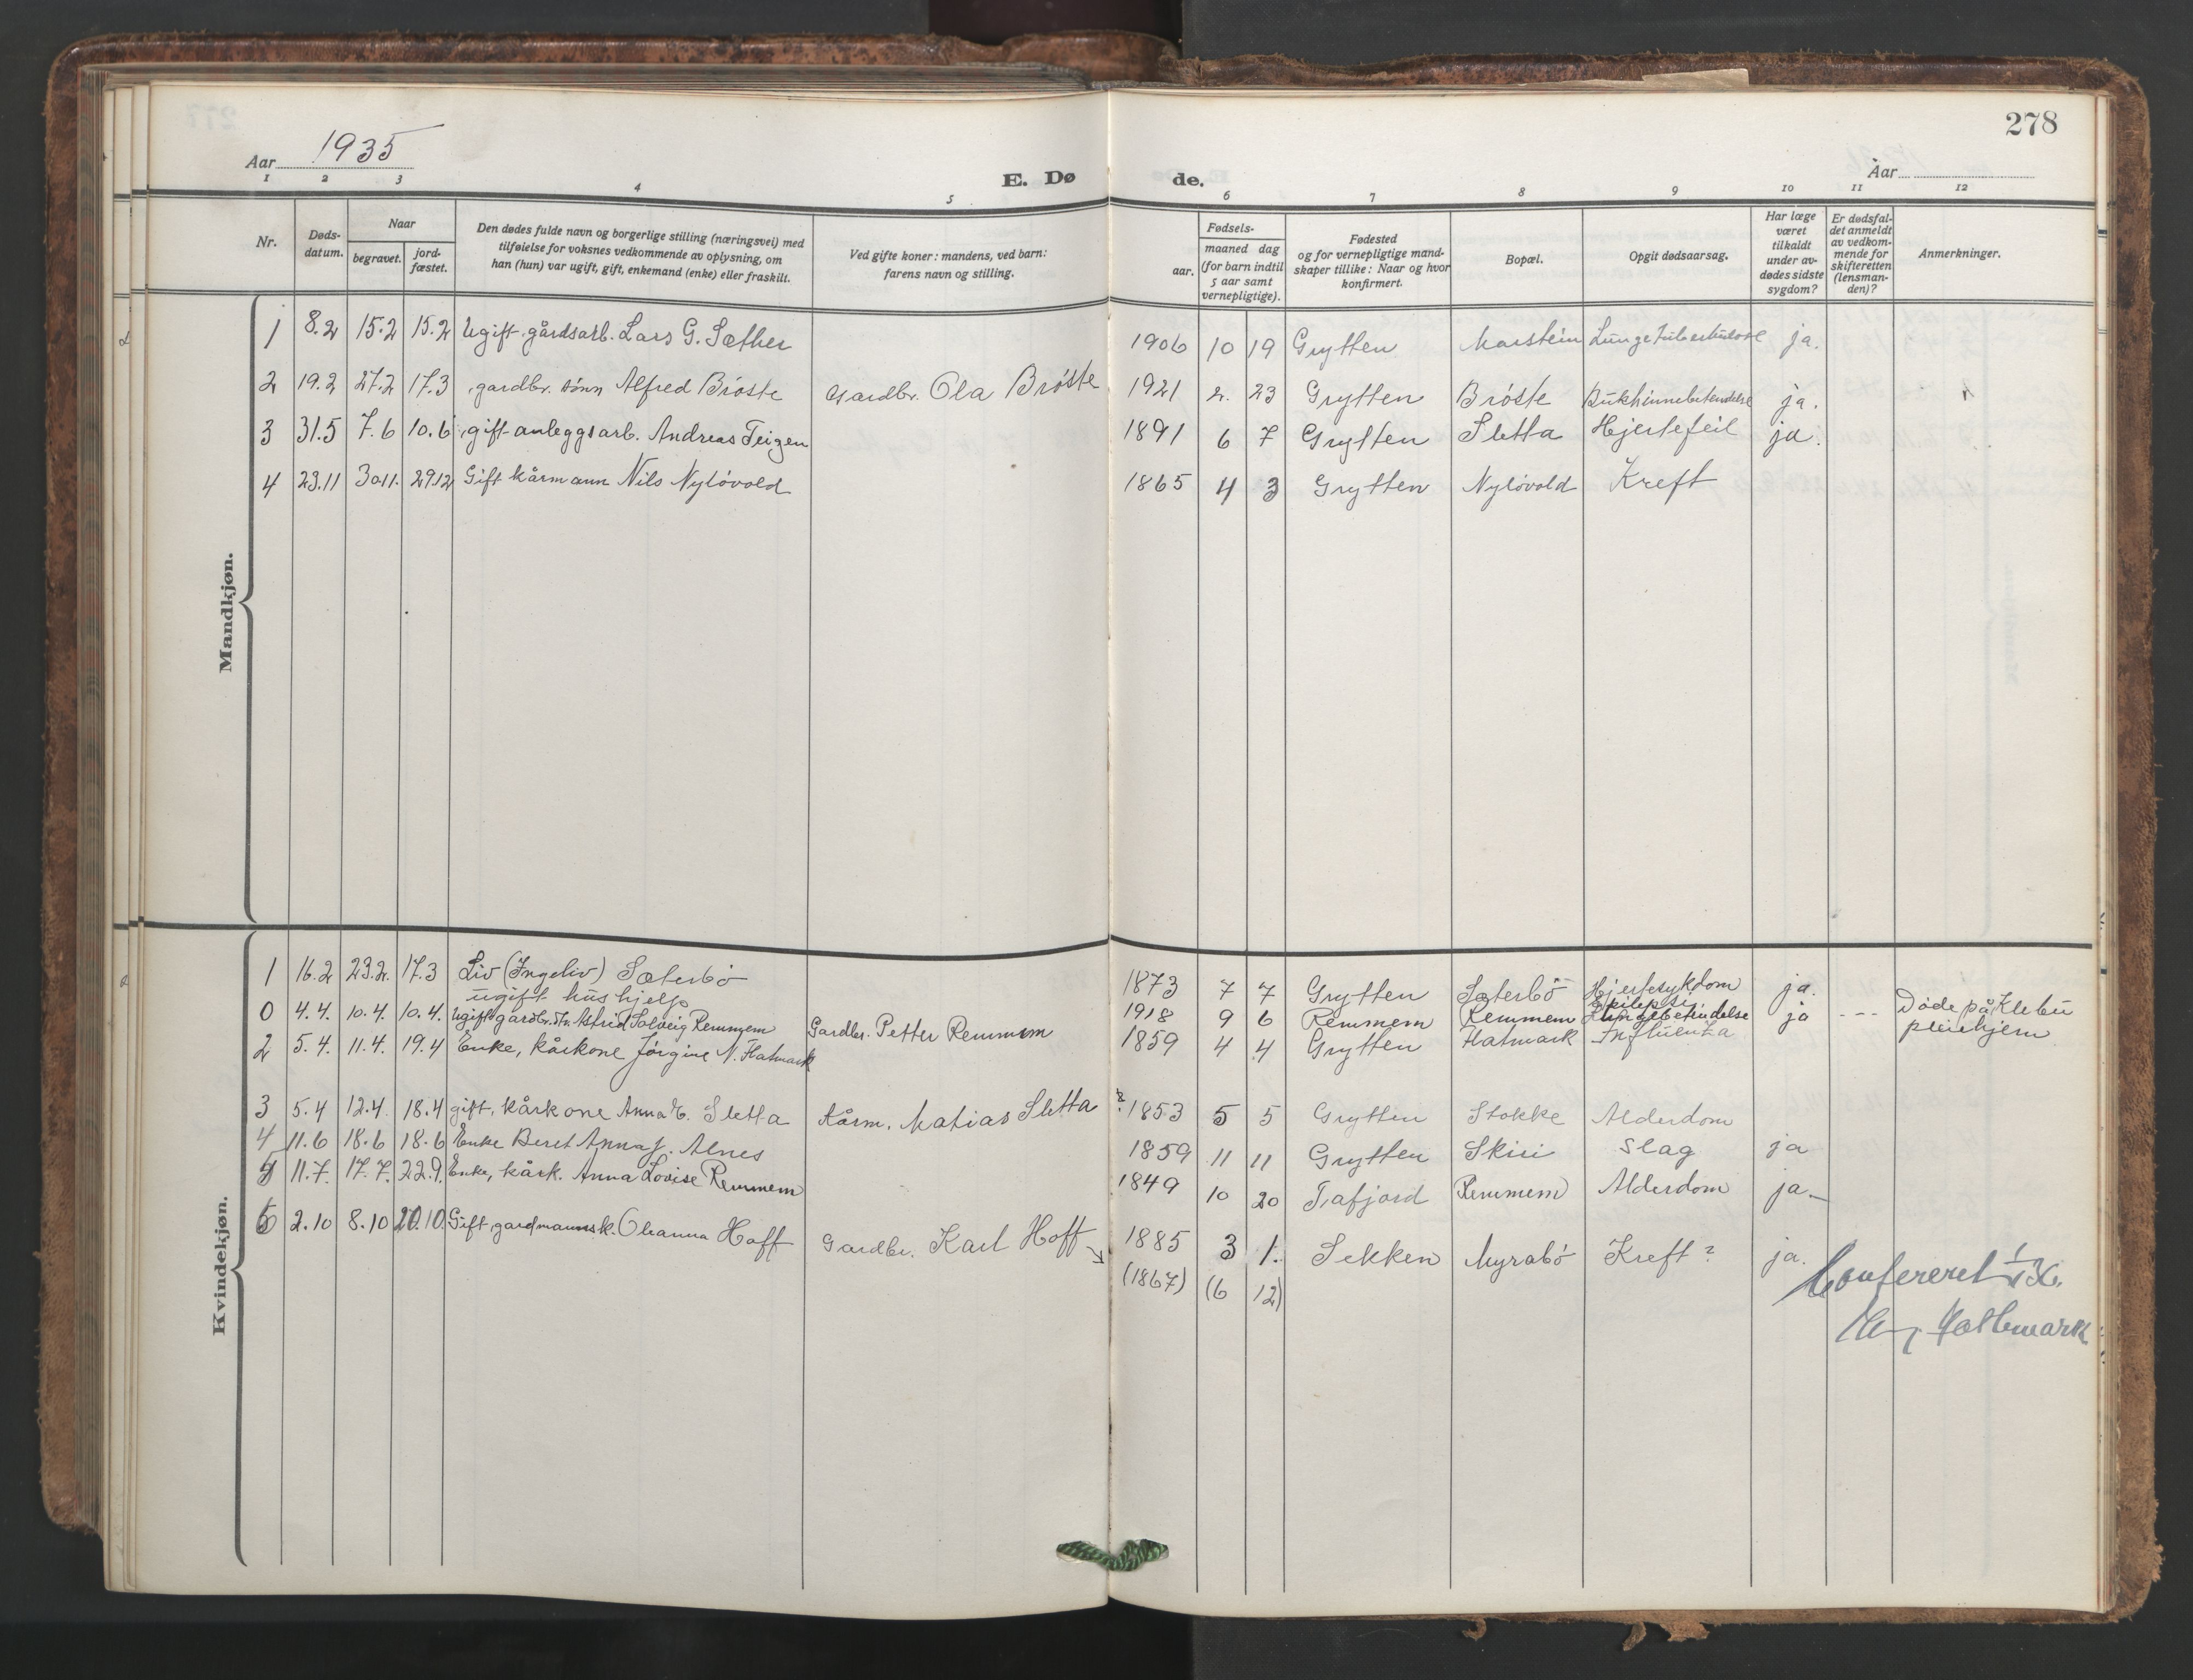 278
Aar 1935
E. Dø de.
Aar
1 2 3 4 5 6 7 8 9 10 11 12
Nr. | Døds-datum. | Naar begravet. | jord-fæstet. | Den dødes fulde navn og borgerlige stilling (næringsvei) med tilføielse for voksnes vedkommende av oplysning, om han (hun) var ugift, gift, enkemand (enke) eller fraskilt. | Ved gifte koner: mandens, ved barn: farens navn og stilling. | Fødsels- aar. | maaned dag (for barn indtil 5 aar samt vernepligtige). | Fødested og for vernepligtige mand-skaper tillike: Naar og hvor konfirmert. | Bopæl. | Opgit dødsaarsag. | Har læge været tilkaldt under av-dødes sidste sygdom? | Er dødsfal-det anmeldt av vedkom-mende for skifteretten (lensman-den)? | Anmerkninger.
Mandkjøn.
1 8.2 15.2 15.2 Ugift gårdsarb. Lars G. Sæther 1906 10 19 Grytten Marstein Lungetuberkulose ja.
2 19.2 27.2 17.3 gardbr. sönn Alfred Bröste Gardbr. Ola Bröste 1921 2. 23 Grytten Bröste Bukhinnebetendelse ja.
3 31.5 7.6 10.6 gift anleggsarb. Andreas Teigen 1891 6 7 Grytten Sletta Hjertefeil ja.
4 23.11 30.11. 29.12 Gift kårmann Nils Nylövold 1865 4 3 Grytten Nylövold Kreft
Kvindekjøn.
1 16.2 23.2. 17.3 Liv (Ingeliv) Sæterbö 1873 7 7 Grytten Sæterbö Hjertesykdom ja.
ugift hushjelp Epilepsi
0 4.4. 10.4. 10.4. Ugift gardbr. dtr. Astrid Solveig Remmem Gardbr. Petter Remmem 1918 9 6 Remmem Remmem Lungebetendelse ja --- Döde på Klebu
pleiehjem
2 5.4. 11.4. 19.4 Enke, kårkone Jörgine N. Flatmark 1859 4 4 Grytten Flatmark Influenza
3 5.4 12.4. 18.4 gift, kårkone Anna E. Sletta Kårm. Matias Sletta 1853 5 5 Grytten Stokke Alderdom
4 11.6 18.6 18.6 Enke Beret Anna J. Alnes 1859 11 11 Grytten Skiri Slag ja
5 11.7. 17.7. 22.9. Enke, kårk. Anna Lovise Remmem 1849 10 20 Tafjord Remmem Alderdom ja
6 2.10 8.10 20.10 Gift gardmannsk. Oleanna Hoff Gardbr. Karl Hoff 1885 3 1. Sekken Myrabö Kreft? ja.
(1867) (6 12)
Confereret